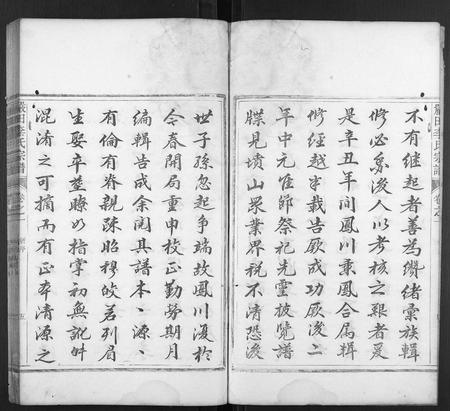 不有继起者善為纘绪彙族輯
修必為後人以考核之艱者爰
是辛丑年间鳳川秉鳳合属輯
修经越半载告厥成功厥後二
年中元值師祭祀先靈披覽譜
牒見墳山界業界税不清恐後
世子孫忽起争端故鳳川復於
今春開局重申校正勤勞期月
编輯告成余阅其譜本、源、
有倫有脊親疎昭穆皎若列眉
生娶卒葬瞭如指掌初無訛舛
混淆之可摘而有正本清源之
嚴田李氏宗譜
卷之一